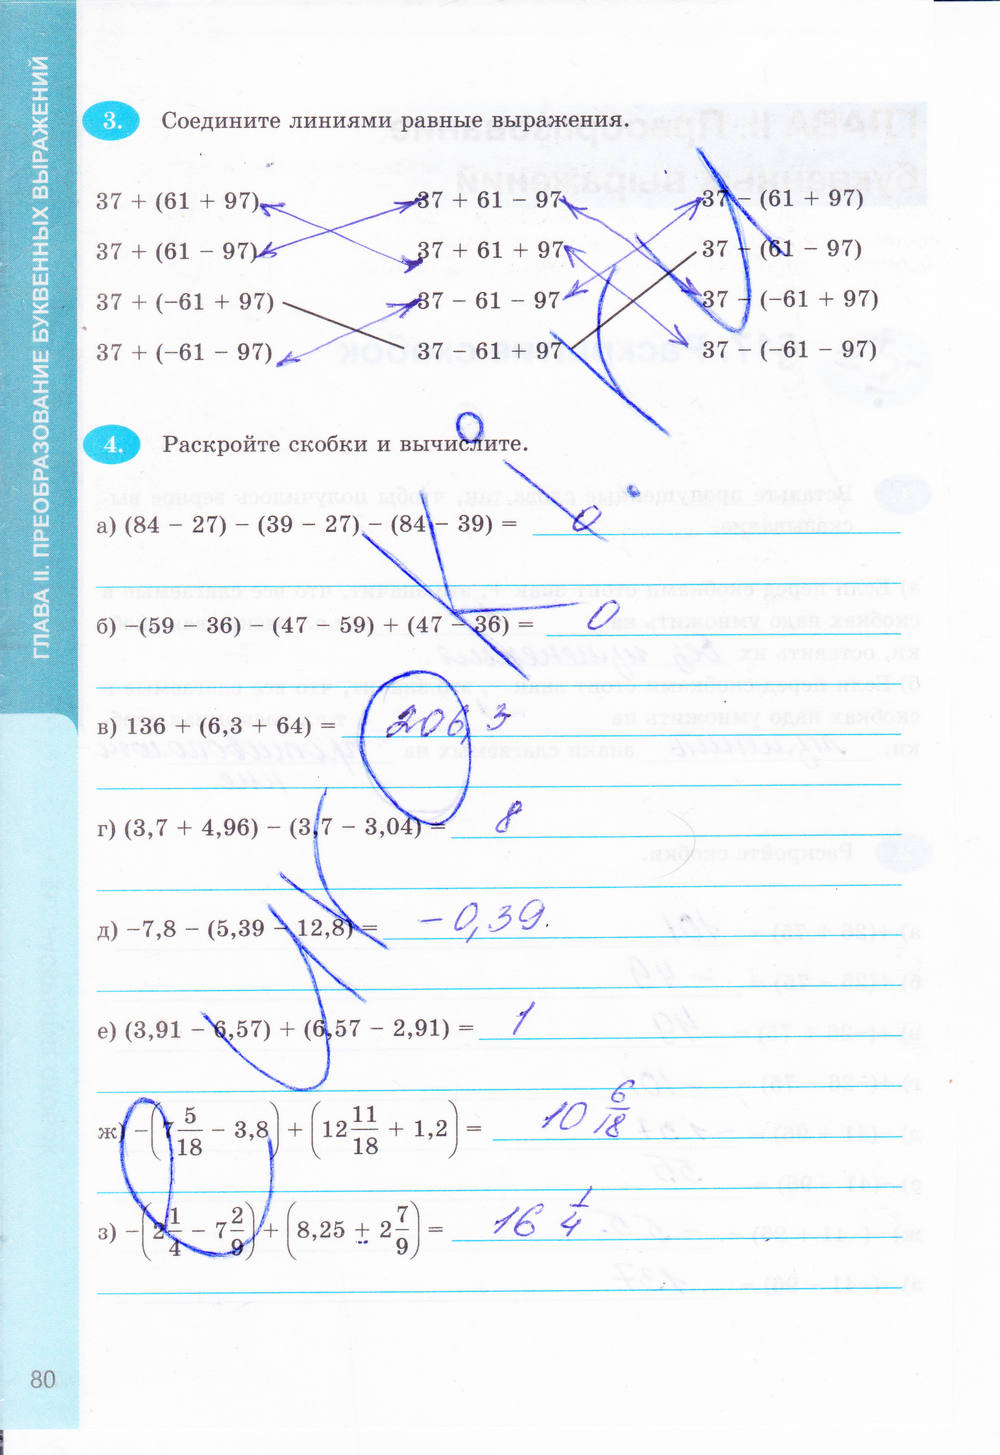 ГЛАВА II. ПРЕОБРАЗОВАНИЕ БУКВЕННЫХ ВЫРАЖЕНИЙ
3. Соедините линиями равные выражения.
37 + (61 + 97) 37 + 61 − 97 37 − (61 + 97)
37 + (61 − 97) 37 + 61 + 97 37 − (61 − 97)
37 + (−61 + 97) 37 − 61 − 97 37 − (−61 + 97)
37 + (−61 − 97) 37 − 61 + 97 37 − (−61 − 97)
4. Раскройте скобки и вычислите.
а) (84 − 27) − (39 − 27) − (84 − 39) = 0
б) −(59 − 36) − (47 − 59) + (47 − 36) = 0
в) 136 + (6,3 + 64) = 206,3
г) (3,7 + 4,96) − (3,7 − 3,04) = 8
д) −7,8 − (5,39 − 12,8) = −0,39.
е) (3,91 − 6,57) + (6,57 − 2,91) = 1
ж) −(7 5/18 − 3,8) + (12 11/18 + 1,2) = 10 6/18
з) −(2 1/4 − 7 2/9) + (8,25 + 2 7/9) = 16 1/4
80